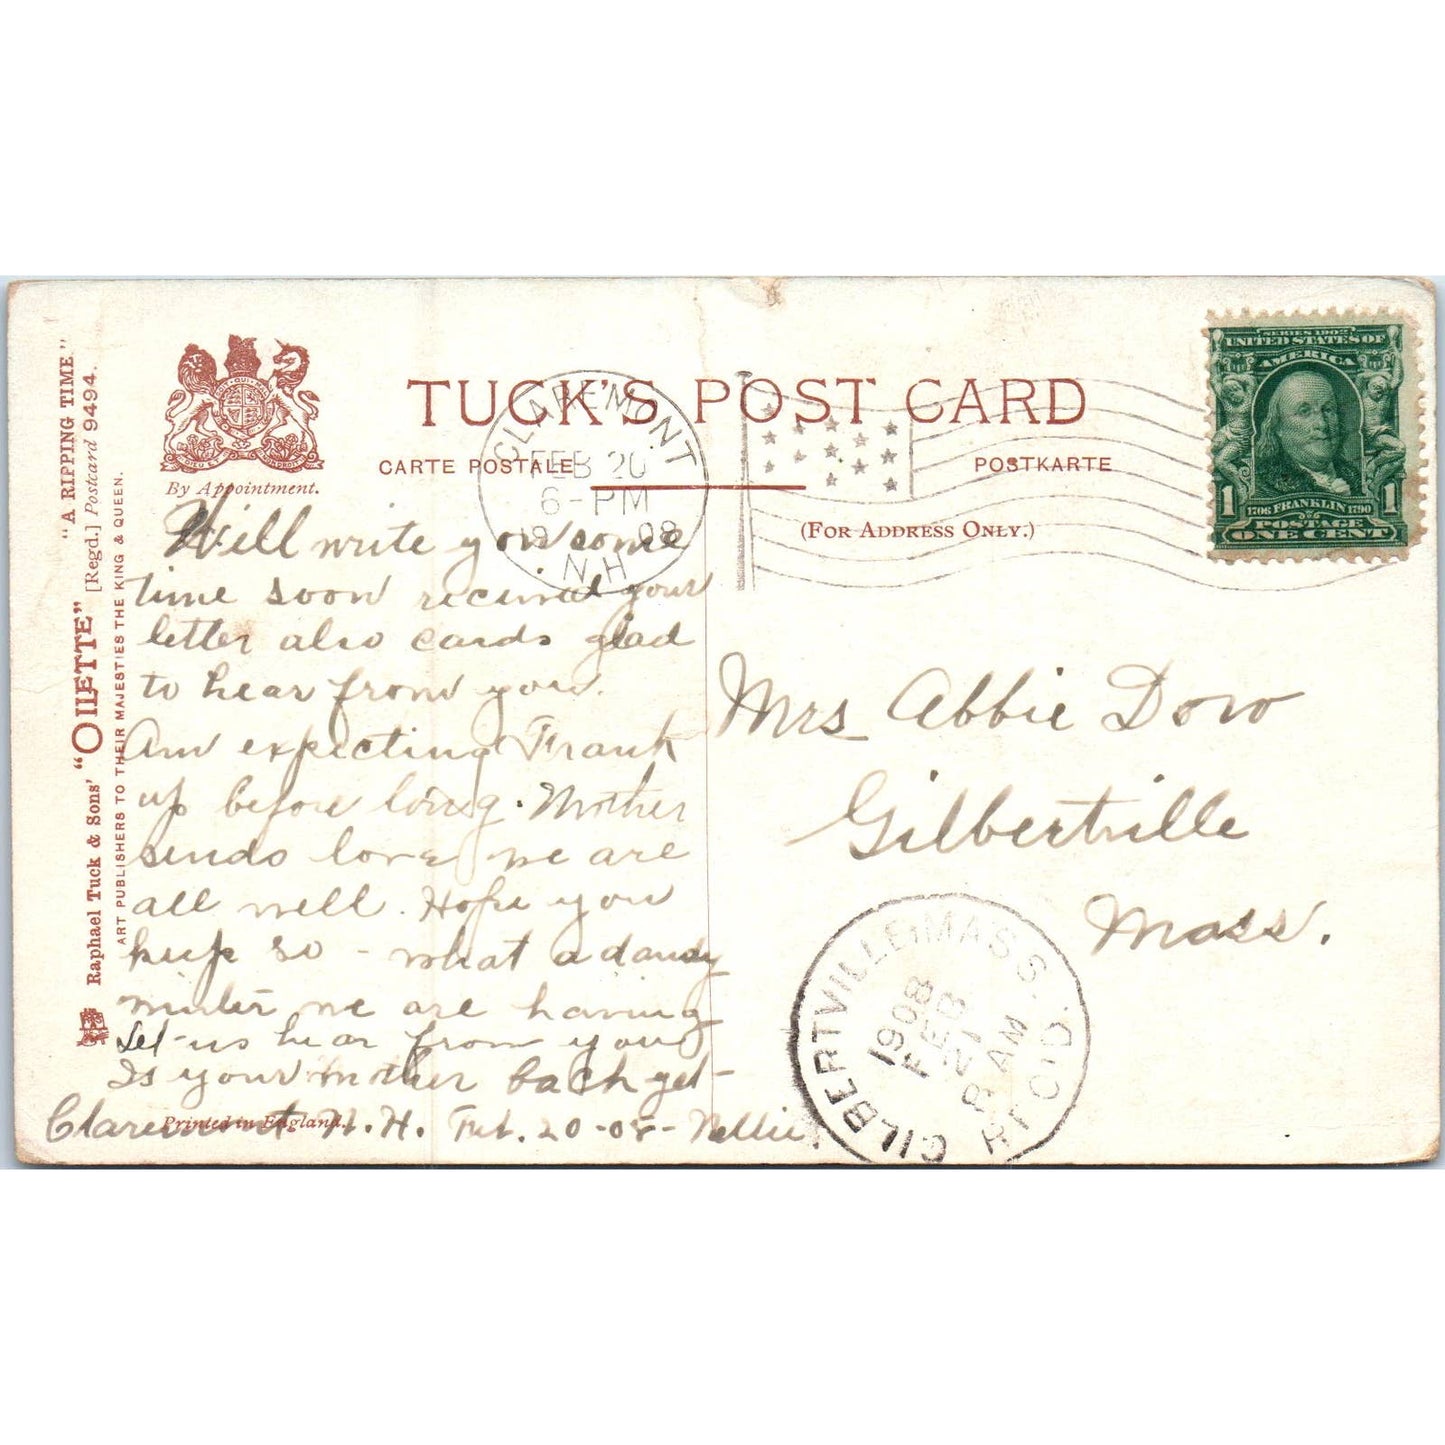 "A RIPPING TIME."
Raphael Tuck & Sons' "OILETTE" [Regd.] Postcard 9494.
ART PUBLISHERS TO THEIR MAJESTIES THE KING & QUEEN.
By Appointment.
TUCK'S POST CARD
CARTE POSTALE
POSTKARTE
(FOR ADDRESS ONLY.)
CLAREMONT
FEB 20
6-PM
1908
N.H
SERIES 1902
UNITED STATES OF
AMERICA
1706 FRANKLIN 1790
1 POSTAGE 1
ONE CENT
Will write you some
time soon received your
letter also cards glad
to hear from you.
Am expecting Frank
up before long. Mother
sends love we are
all well. Hope you
keep so - what a dandy
winter we are having
Let us hear from you
Is your mother back yet-
Claremont N.H. Feb. 20-08- Nellie
Printed in England.
Mrs Abbie Dow
Gilbertville
Mass.
GILBERTVILLE MASS.
1908
FEB
21
8 AM
REC'D.